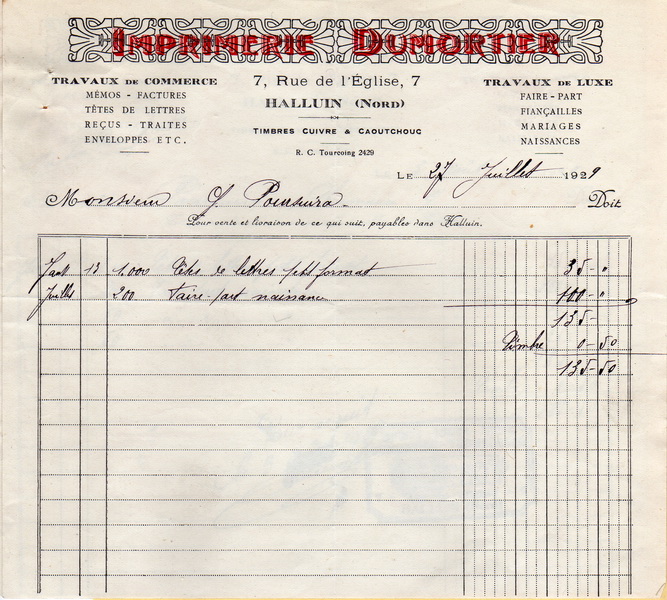 IMPRIMERIE DUMORTIER
TRAVAUX DE COMMERCE
MÉMOS - FACTURES
TÊTES DE LETTRES
REÇUS - TRAITES
ENVELOPPES ETC.
7, Rue de l'Église, 7
HALLUIN (NORD)
TIMBRES CUIVRE & CAOUTCHOUC
R. C. Tourcoing 2429
TRAVAUX DE LUXE
FAIRE-PART
FIANÇAILLES
MARIAGES
NAISSANCES
LE 27 Juillet 1929
Monsieur Doit
Pour vente et livraison de ce qui suit, payables dans Halluin.
13 1.000 Têtes de lettres petit format 35 - "
Juillet 200 Faire-part naissance 100 - "
135 -
Timbre 0 - 50
135 - 50